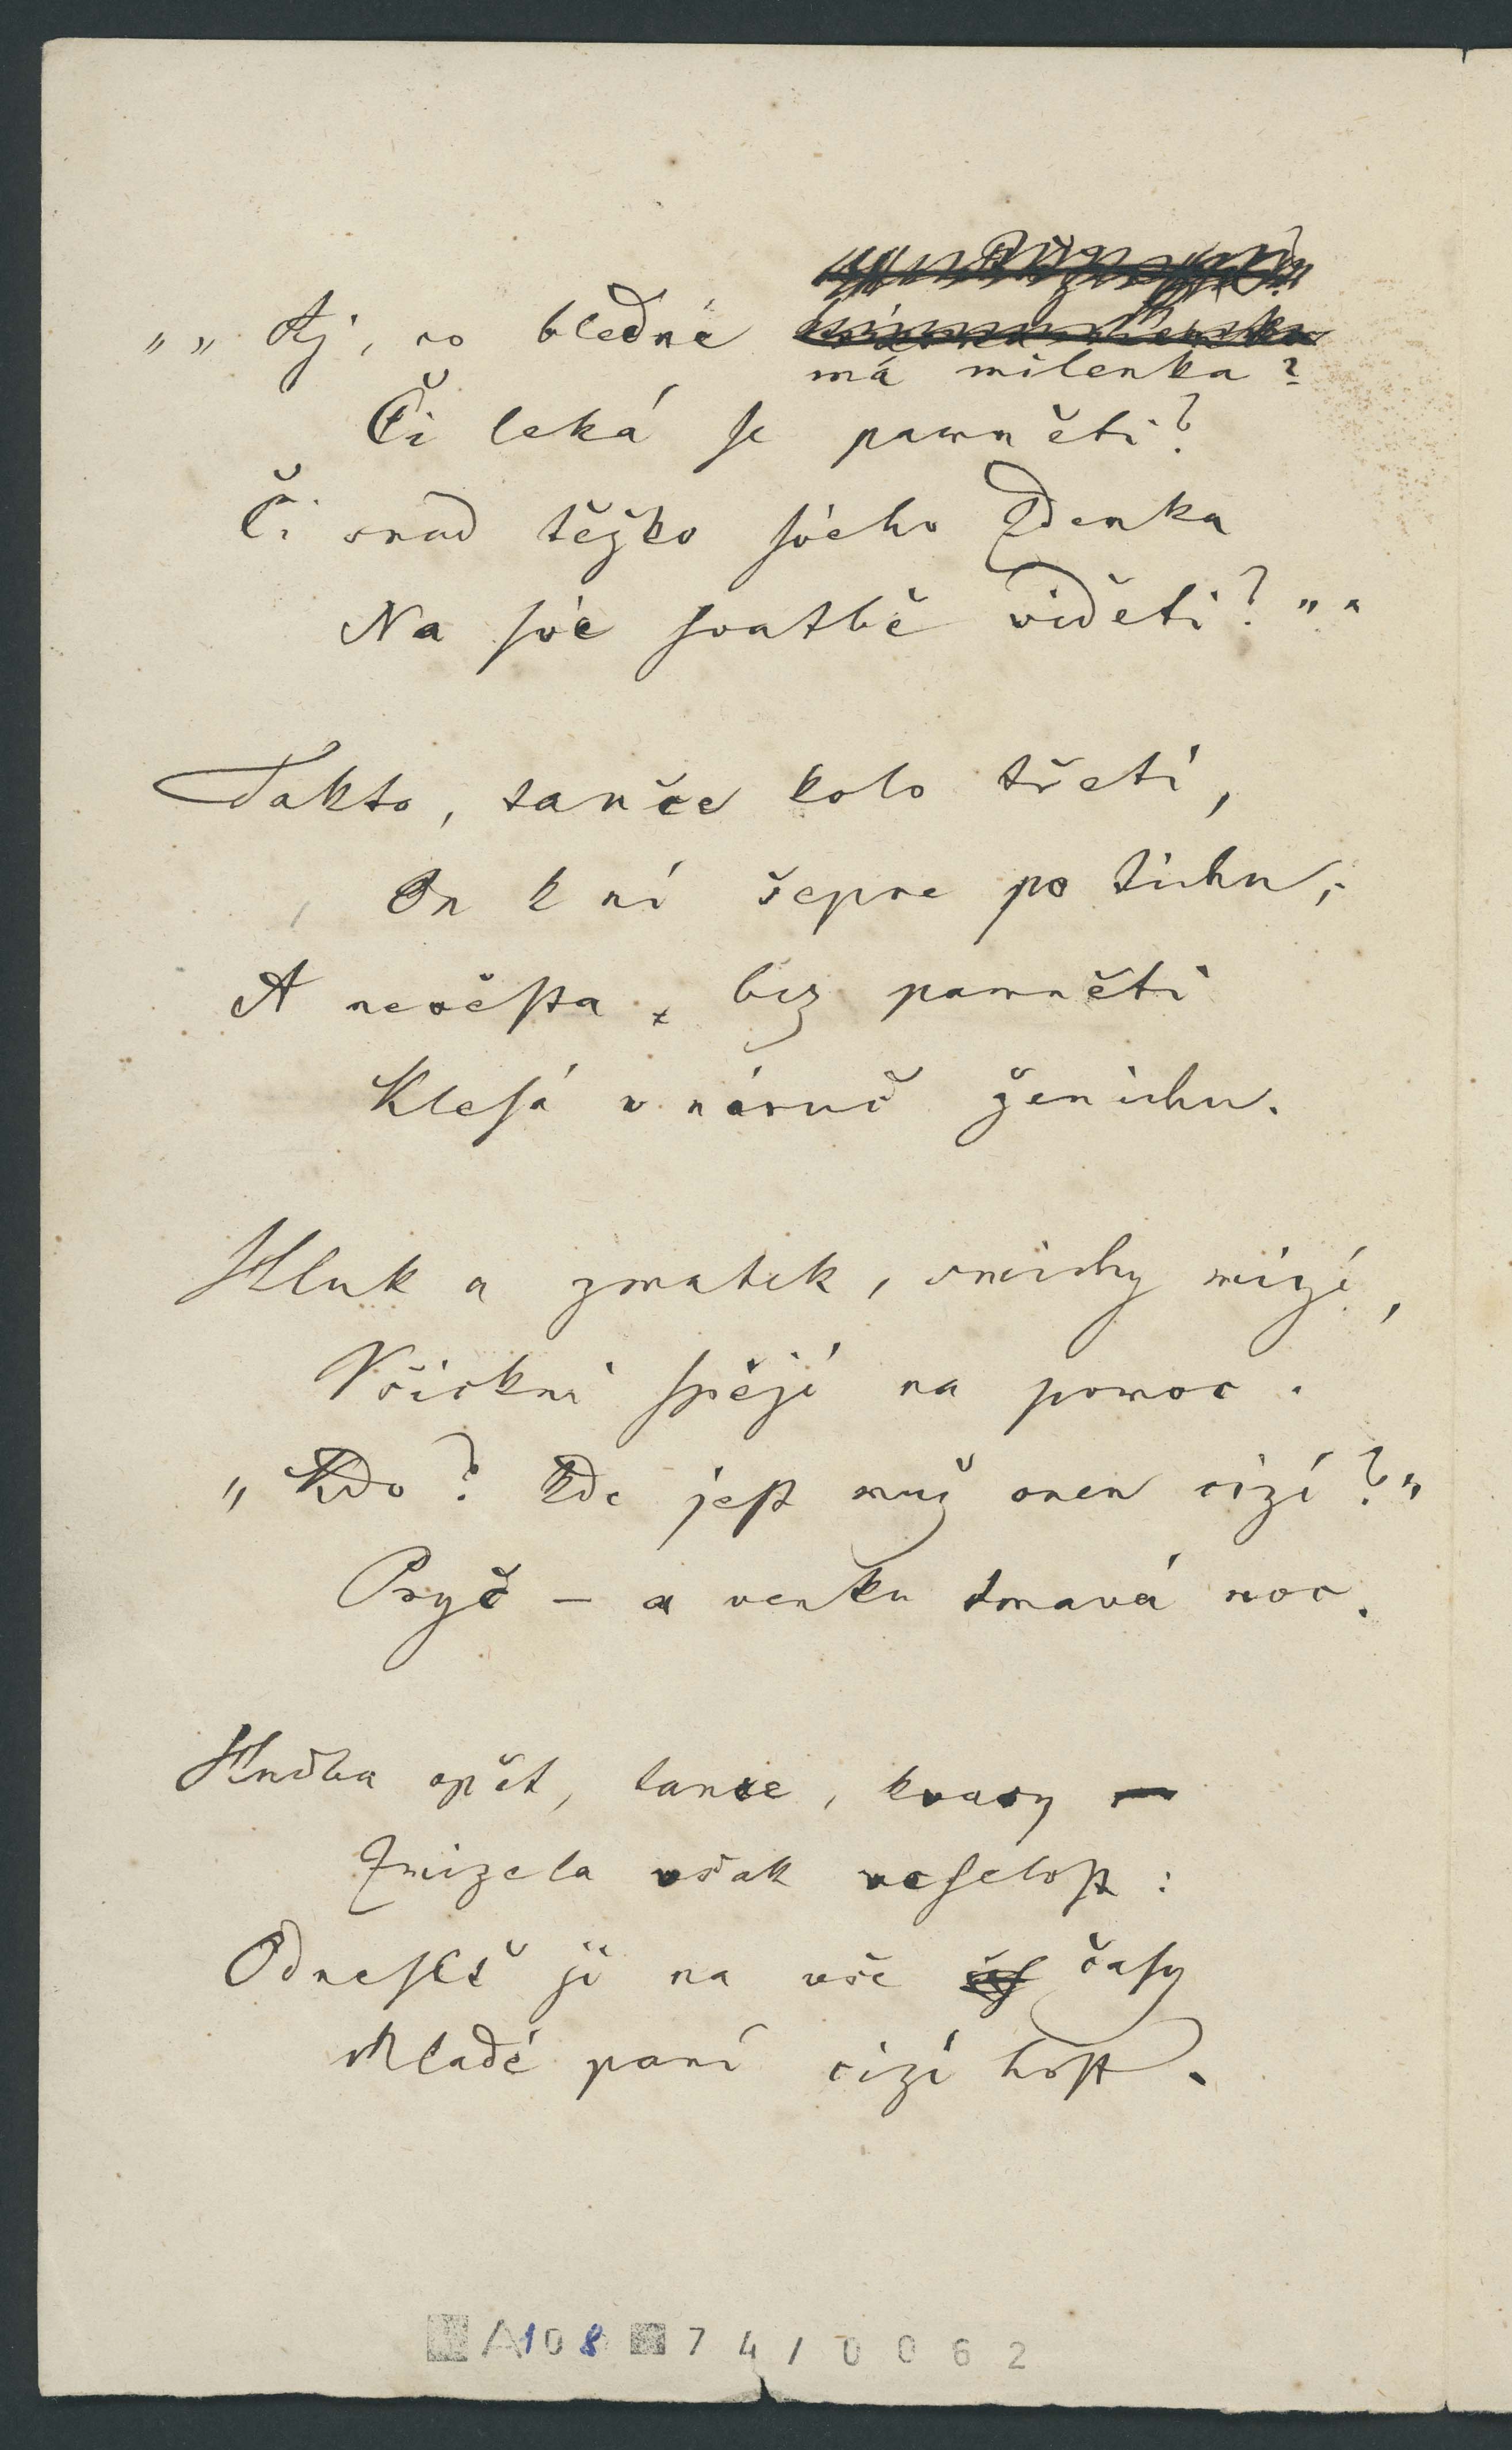 „„ Aj, co bledne
má milenka?
Či leká se paměti?
Či snad těžko svého Zdenka
Na své svatbě viděti?""
Takto, tanče kolo třetí,
On k ní šepce po tichu;
A nevěsta bez paměti
Klesá v náruč ženichu.
Hluk a zmatek, smíchy mizí,
Všickni spějí na pomoc.
„Kdo? Kde jest muž onen cizí?"
Pryč – a venku tmavá noc.
Hudba opět, tance, kvasy –
Zmizela však veselost:
Odnesltě ji na vše časy
Mladé paní cizí host.
A108 74/0062